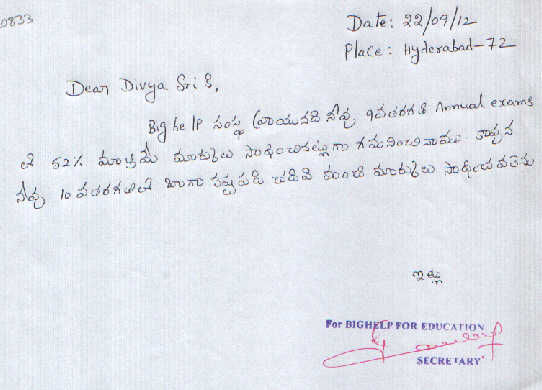 0833
Date: 22/09/12
Place: Hyderabad-72
Dear Divya Sri K,
Bighelp సంస్థ వ్రాయునది నీవు 9వతరగతి Annual exams
లో 52% మాత్రమే మార్కులు సాధించినట్లుగా గమనించినాము. కావున
నీవు 10వతరగతిలో బాగా కష్టపడి చదివి మంచి మార్కులు సాధించవలెను
ఇట్లు
For BIGHELP FOR EDUCATION
SECRETARY